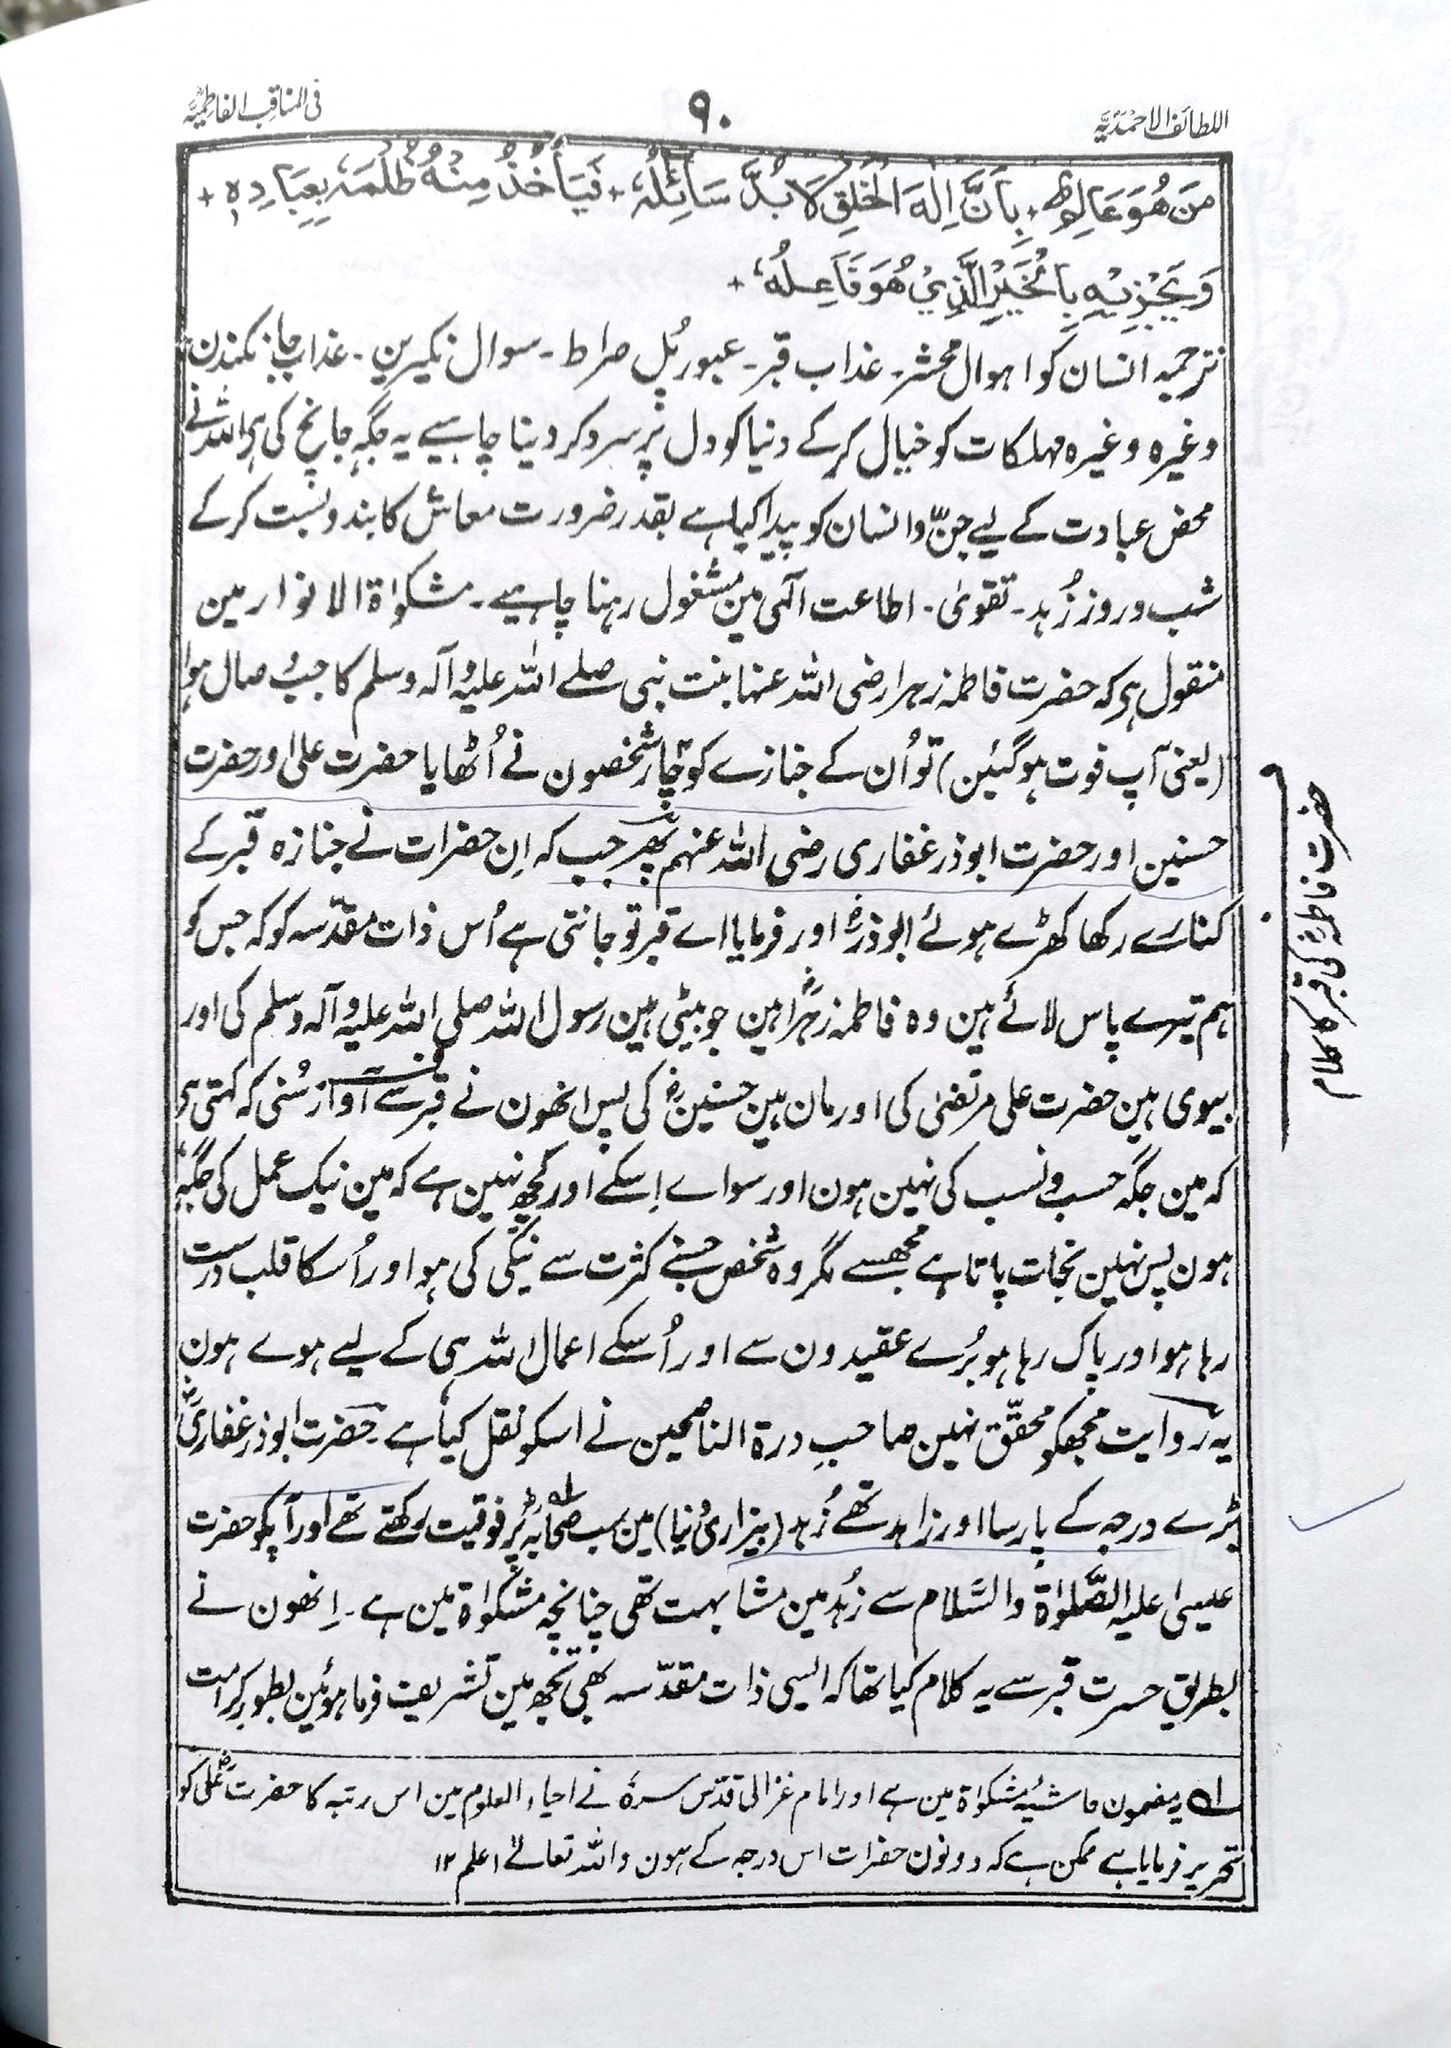 اللطائف الاحمدیّہ
۹۰
فی المناقب الفاطمیّہ
بِأَنَّ اِلٰهَ الْخَلْقِ لَا بُدَّ سَائِلُهٗ + فَيَأْخُذُ مِنْهُ ظُلْمَهٗ بِعِبَادِهٖ +
وَيَجْزِيْهِ بِالْخَيْرِ الَّذِيْ هُوَ فَاعِلُهٗ +
ترجمہ انسان کو اہوال محشر۔ عذاب قبر۔ عبور پُل صراط۔ سوال نکیرین۔ عذاب جانکندن
وغیرہ وغیرہ مہلکات کو خیال کرکے دنیا کو دل پر سرد کر دینا چاہیے یہ جگہ جانچ کی ہی اللہ نے
محض عبادت کے لیے جنّ و انسان کو پیدا کیا ہے بقدر ضرورت معاش کا بندوبست کرکے
شب و روز زُہد۔ تقویٰ۔ اطاعت الٰہی مین مشغول رہنا چاہیے۔ مشکواۃ الانوار مین
منقول ہی کہ حضرت فاطمہ زہرا رضی اللہ عنہا بنت نبی صلے اللہ علیہ وآلہ وسلم کا جب وصال ہوا
(یعنی آپ فوت ہوگئین) تو اُن کے جنازے کو چار شخصون نے اُٹھایا حضرت علی اور حضرت
حسنین اور حضرت ابوذر غفاری رضی اللہ عنہم پھر جب کہ اِن حضرات نے جنازہ قبر کے
کنارے رکھا کھڑے ہوئے ابوذرؓ اور فرمایا اے قبر تو جانتی ہے اُس ذات مقدّسہ کو کہ جس کو
ہم تیرے پاس لائے ہین وہ فاطمہ زہراؓ ہین جو بیٹی ہین رسول اللہ صلی اللہ علیہ وآلہ وسلم کی اور
بیوی ہین حضرت علی مرتضیٰ کی اور مان ہین حسنینؓ کی پس انھون نے قبر سے آواز سُنی کہ کہتی ہی
کہ مین جگہ حسب و نسب کی نہین ہون اور سواے اِسکے اور کچھ نہین ہے کہ مین نیک عمل کی جگہ
ہون پس نہین نجات پاتا ہے مجھسے مگر وہ شخص جسنے کثرت سے نیکی کی ہو اور اُسکا قلب درست
رہا ہو اور پاک رہا ہو بُرے عقیدون سے اور اُسکے اعمال اللہ ہی کے لیے ہوے ہون
یہ روایت مجھکو محقّق نہین صاحب درۃ الناصحین نے اسکو نقل کیا ہے۔ حضرت ابوذر غفاریؓ
بڑے درجہ کے پارسا اور زاہد تھے زُہد (بیزاری دُنیا) مین سب صحابہؓ پر فوقیت رکھتے تھے اور آپکو حضرت
عیسیٰ علیہ الصّلواۃ والسّلام سے زُہد مین مشابہت تھی چنانچہ مشکواۃ مین ہے۔ انھون نے
بطریق حسرت قبر سے یہ کلام کیا تھا کہ ایسی ذات مقدّسہ بھی تجھ مین تشریف فرما ہوئین بطور کرامت
حضرت فاطمہؓ کی قبر کا کلام
لہ یہ مضمون حاشیہ مشکواۃ مین ہے اور امام غزالی قدّس سرہٗ نے احیاء العلوم مین اس رتبہ کا حضرت علیؓ کو
تحریر فرمایا ہے ممکن ہے کہ دونون حضرات اس درجہ کے ہون واللہ تعالےٰ اعلم ۱۲